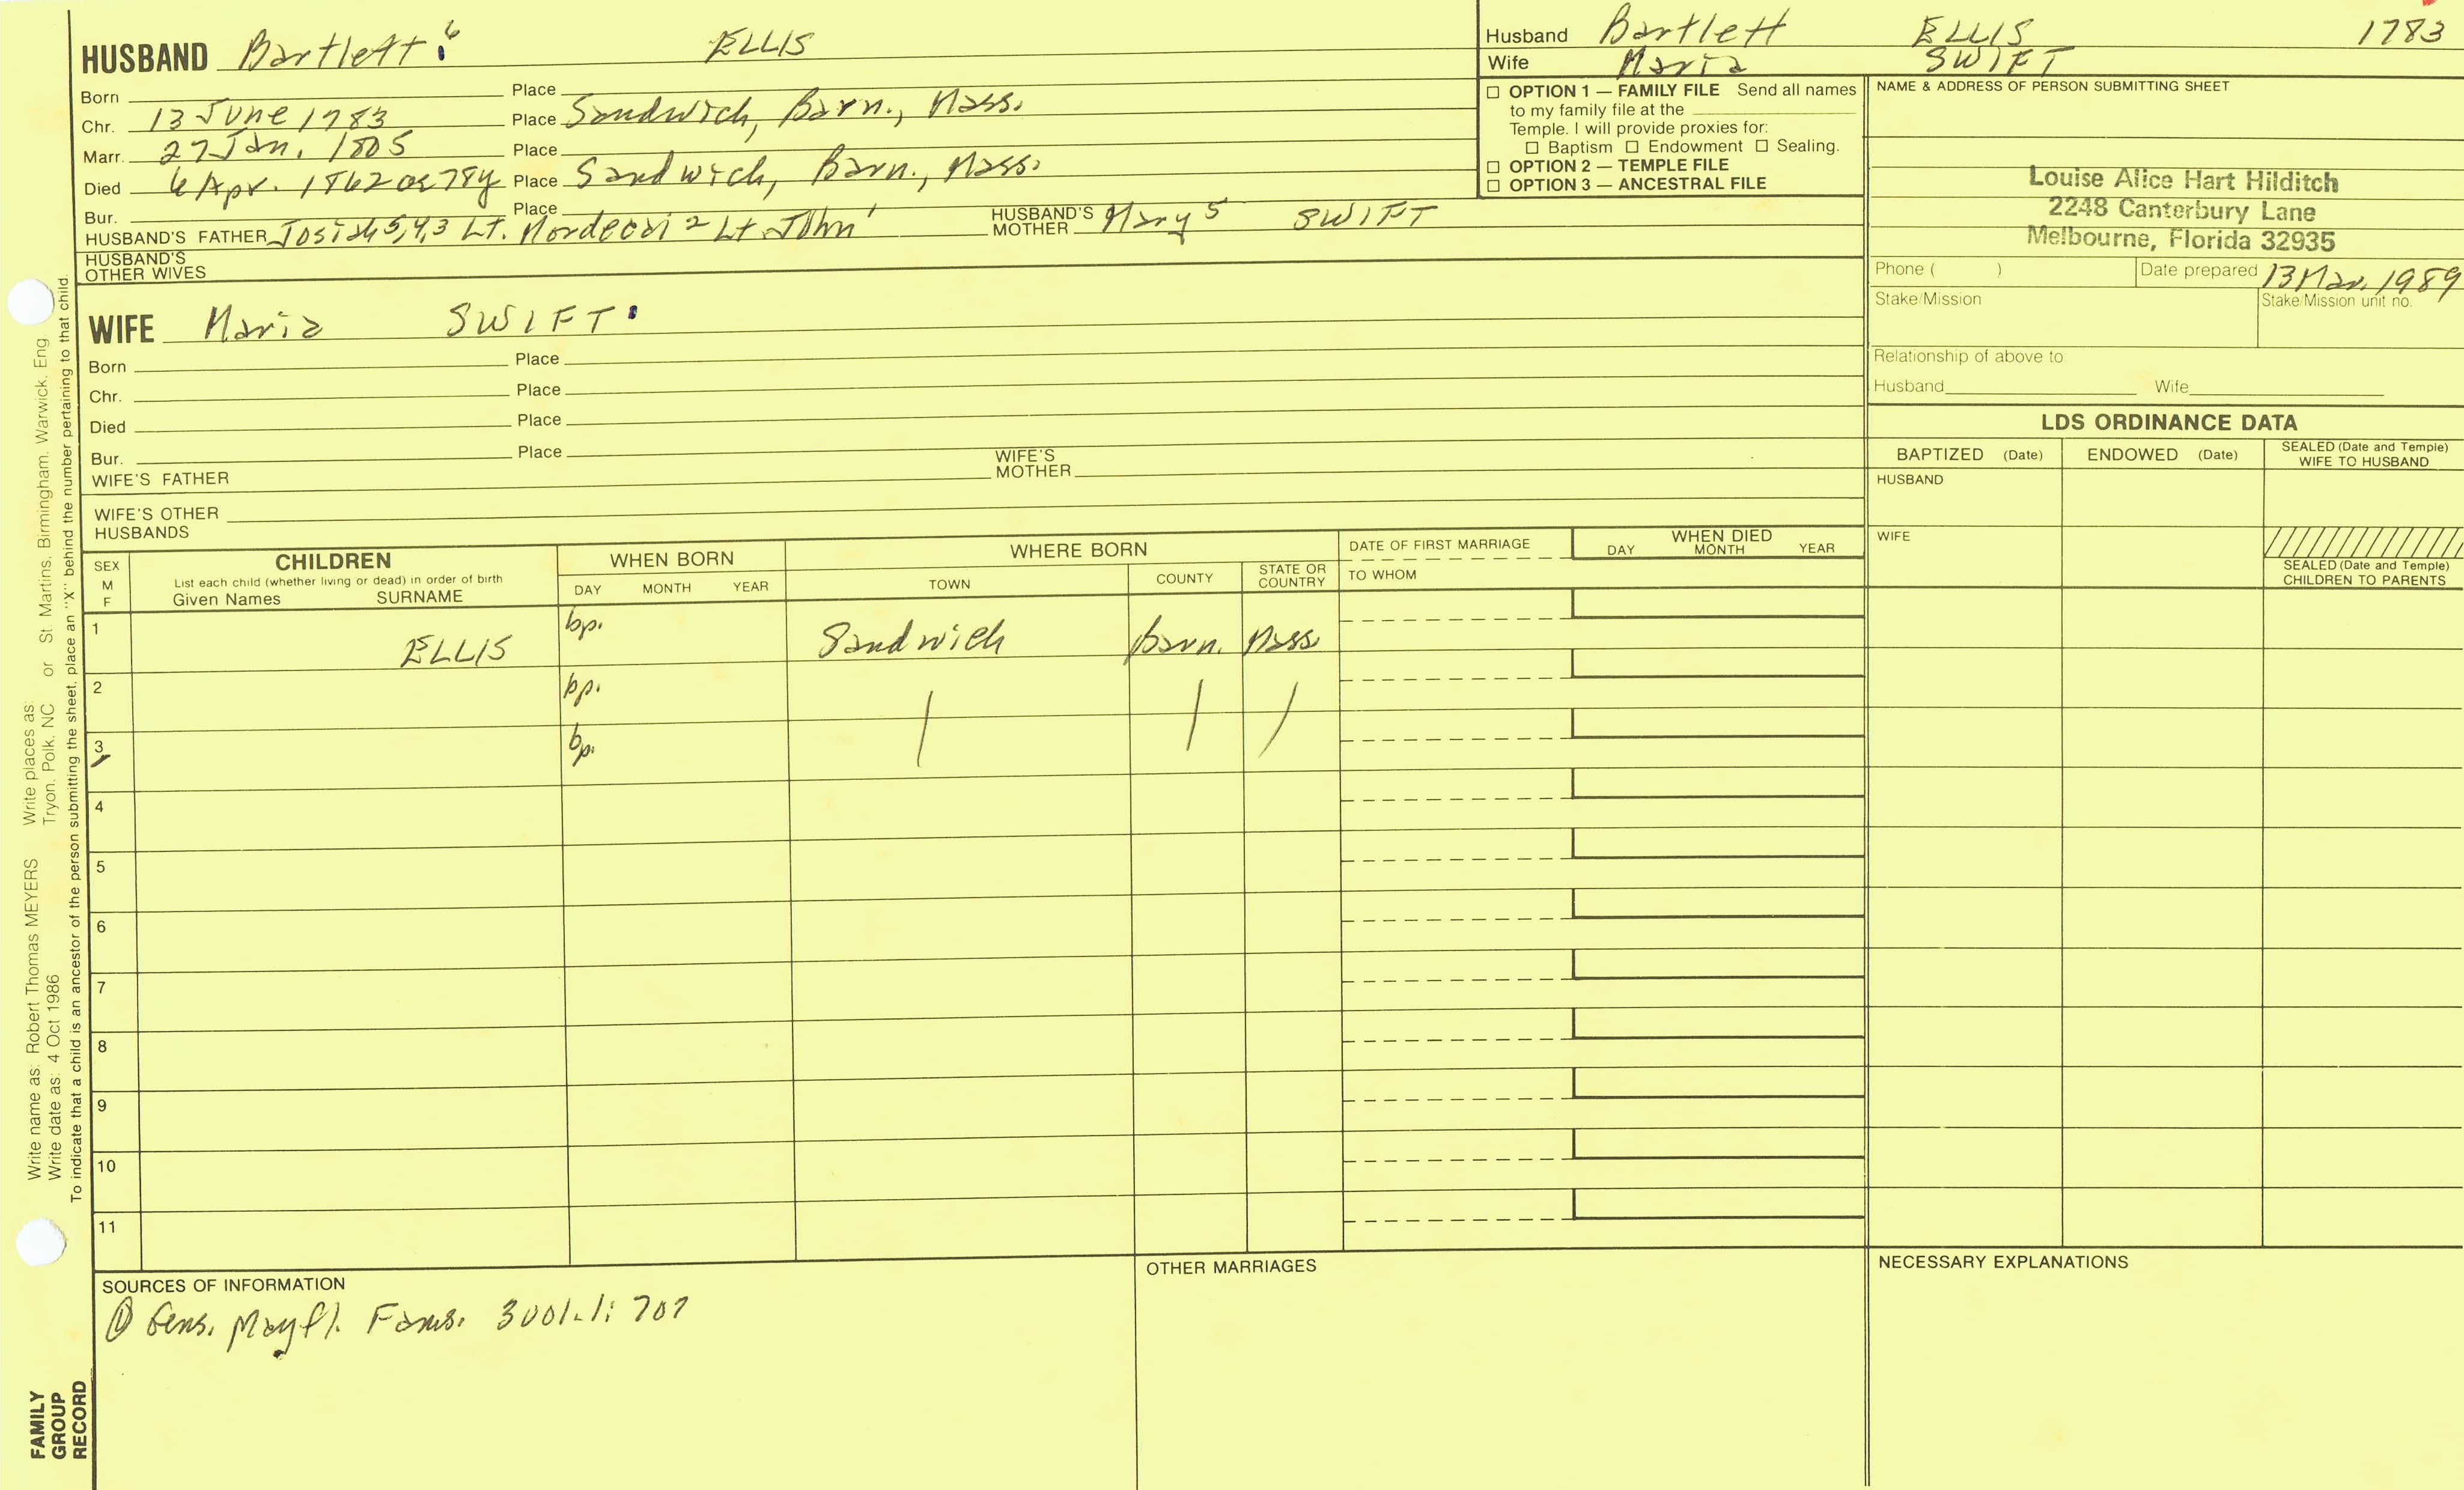 HUSBAND Bartlett 6 ELLIS
Born Place
Chr. 13 June 1783 Place Sandwich, Barn., Mass.
Marr. 27 Jan. 1805 Place
Died 6 Apr. 1862 ae 78y Place Sandwich, Barn., Mass.
Bur. Place
HUSBAND'S FATHER Josiah 5,4,3 Lt. Mordecai 2 Lt. John 1 HUSBAND'S MOTHER Mary 5 SWIFT
HUSBAND'S OTHER WIVES
WIFE Maria SWIFT
Born Place
Chr. Place
Died Place
Bur. Place
WIFE'S FATHER WIFE'S MOTHER
WIFE'S OTHER HUSBANDS
Husband Bartlett ELLIS 1783
Wife Maria SWIFT
☐ OPTION 1 — FAMILY FILE Send all names
to my family file at the
Temple. I will provide proxies for:
☐ Baptism ☐ Endowment ☐ Sealing.
☐ OPTION 2 — TEMPLE FILE
☐ OPTION 3 — ANCESTRAL FILE
NAME & ADDRESS OF PERSON SUBMITTING SHEET
Louise Alice Hart Hilditch
2248 Canterbury Lane
Melbourne, Florida 32935
Phone ( ) Date prepared 13 Mar. 1989
Stake/Mission Stake/Mission unit no.
Relationship of above to
Husband Wife
LDS ORDINANCE DATA
BAPTIZED (Date) ENDOWED (Date) SEALED (Date and Temple) WIFE TO HUSBAND
HUSBAND
WIFE
SEALED (Date and Temple)
CHILDREN TO PARENTS
SEX M F
CHILDREN
List each child (whether living or dead) in order of birth
Given Names SURNAME
WHEN BORN
DAY MONTH YEAR
WHERE BORN
TOWN COUNTY STATE OR COUNTRY
DATE OF FIRST MARRIAGE
TO WHOM
WHEN DIED
DAY MONTH YEAR
1 ELLIS bp. Sandwich Barn. Mass.
2 bp.
3 bp.
4
5
6
7
8
9
10
11
SOURCES OF INFORMATION
① Gens. Mayfl. Fams. 3001.1: 707
OTHER MARRIAGES
NECESSARY EXPLANATIONS
Write name as: Robert Thomas MEYERS Write places as:
Write date as: 4 Oct 1986 Tryon, Polk, NC or St Martins, Birmingham, Warwick, Eng
To indicate that a child is an ancestor of the person submitting the sheet, place an "X" behind the number pertaining to that child.
FAMILY
GROUP
RECORD